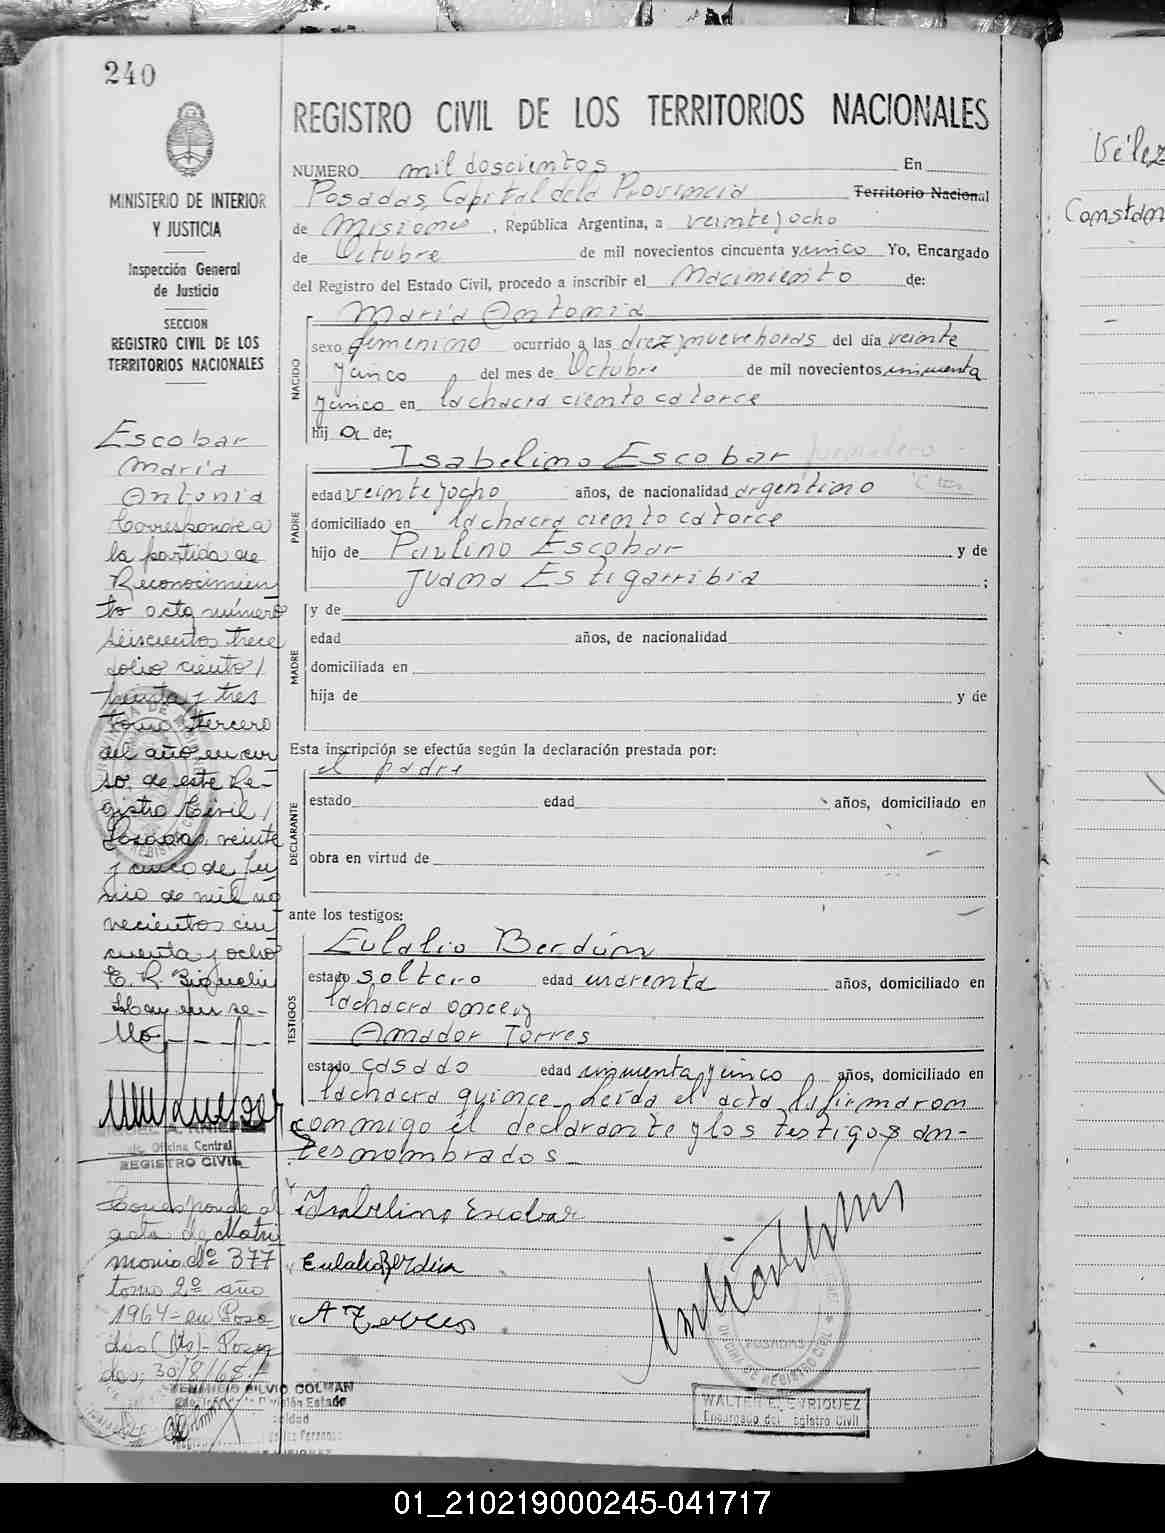 240
MINISTERIO DE INTERIOR
Y JUSTICIA
Inspección General
de Justicia
SECCION
REGISTRO CIVIL DE LOS
TERRITORIOS NACIONALES
Escobar
María
Antonia
Corresponde a
la partida de
Reconocimien
to acta número
seiscientos trece
folio ciento
treinta y tres
tomo tercero
del año en cur
so, de este Re-
gistro Civil,
Posadas, veinte
y cinco de Ju
nio de mil no
vecientos cin
cuenta y ocho
E. R.
Hay un se-
llo
Oficina Central
REGISTRO CIVIL
Corresponde al
acta de Matri
monio Nº 377
tomo 2º año
1964 - en Posa
das (Ms) - Posa
das, 30/8/
SILVIO COLMAN
REGISTRO CIVIL DE LOS TERRITORIOS NACIONALES
NUMERO mil doscientos En
Posadas, Capital de la Provincia Territorio Nacional
de Misiones, República Argentina, a veinte y ocho
de Octubre de mil novecientos cincuenta y cinco Yo, Encargado
del Registro del Estado Civil, procedo a inscribir el Nacimiento de:
NACIDO
María Antonia
sexo femenino ocurrido a las diez y nueve horas del día veinte
y cinco del mes de Octubre de mil novecientos cincuenta
y cinco en la chacra ciento catorce
hij a de:
PADRE
Isabelino Escobar jornalero
edad veinte y ocho años, de nacionalidad argentino
domiciliado en la chacra ciento catorce
hijo de Paulino Escobar y de
Juana Estigarribia ;
MADRE
y de
edad años, de nacionalidad
domiciliada en
hija de y de
Esta inscripción se efectúa según la declaración prestada por:
el padre
DECLARANTE
estado edad años, domiciliado en
obra en virtud de
ante los testigos:
TESTIGOS
Eulalio Berdún
estado soltero edad cuarenta años, domiciliado en
la chacra once y
Amador Torres
estado casado edad cincuenta y cinco años, domiciliado en
la chacra quince leída el acta la firmaron
conmigo el declarante y los testigos an-
tes nombrados
Isabelino Escobar
Eulalio Berdún
A Torres
OFICINA DE REGISTRO CIVIL
POSADAS
WALTER E. ENRIQUEZ
Encargado del Registro Civil
Vélez
Constan
01_210219000245-041717